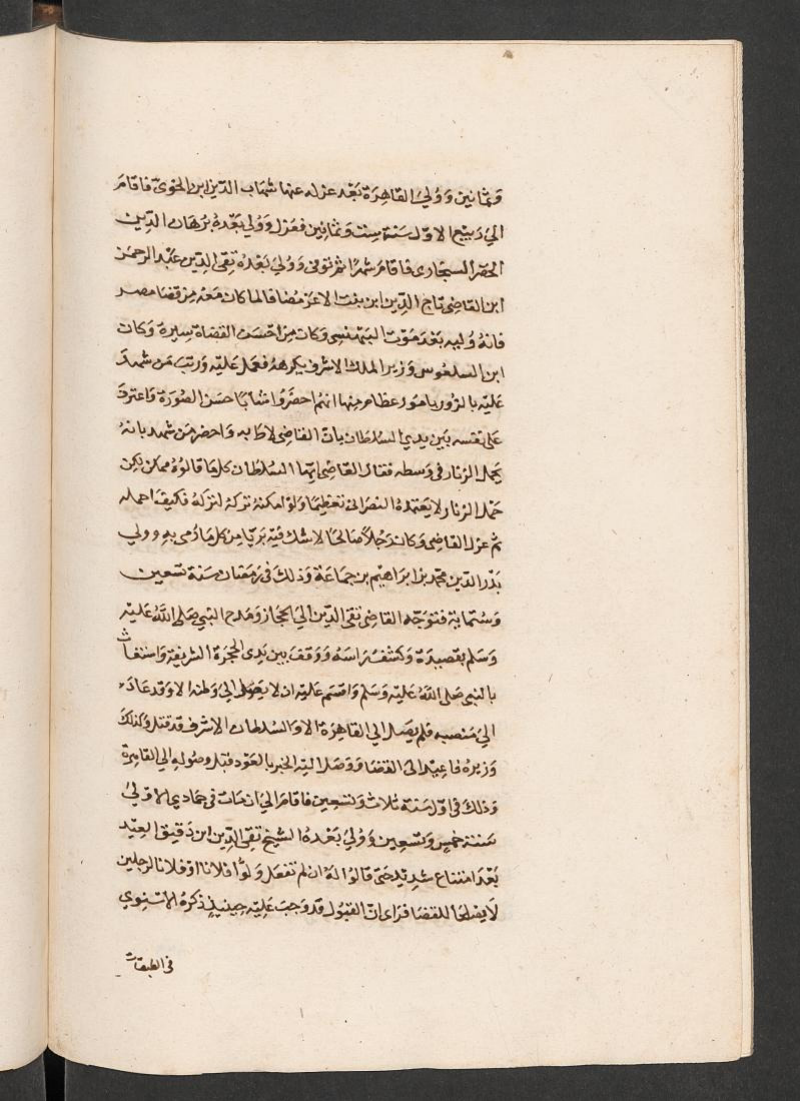 وثمانين وولي القاهرة بعد عزله عنها شهاب الدين ابن الخوي فاقام
الي ربيع الاول سنة ست وثمانين فعزل وولي بعده برهان الدين
الخضر السنجاري فاقام شهرا ثم توفي وولي بعده تقي الدين عبد الرحمن
ابن القاضي تاج الدين ابن بنت الاعز مضافا لما كان معه من قضا مصر
فانه وليه بعد موت البهنسي وكان من احسن القضاة سيرة وكان
ابن السلعوس وزير الملك الاشرف يكرهه فعمل عليه ورتب من شهد
عليه بالزور بامور عظام منها انهم احضروا شابا حسن الصورة واعترف
على نفسه بين يدي السلطان بان القاضي لاط به واحضر من شهد بانه
يحمل الزنار في وسطه فقال القاضي ايها السلطان كل ما قالوه ممكن لكن
حمل الزنار لا يعتمده النصراني تعظيما ولو امكنه تركه لتركه فكيف احمله
ثم عزل القاضي وكان رجلا صالحا لا شك فيه بريا من كل ما رمي به وولي
بدر الدين محمد بن ابراهيم بن جماعة وذلك في رمضان سنة تسعين
وستماية فتوجه القاضي تقي الدين الي الحجاز ومدح النبي صلى الله عليه
وسلم بقصيدة وكشف راسه ووقف بين يدي الحجرة الشريفة واستغاث
بالنبي صلى الله عليه وسلم واقسم عليه ان لا يصل الي وطنه الا وقد عاد
الي منصبه فلم يصل الي القاهرة الا والسلطان الاشرف قد قتل وكذلك
وزيره فاعيد الى القضا ووصل اليه الخبر بالعود قبل وصوله الي القاهرة
وذلك في اول سنة ثلاث وتسعين فاقام الي ان مات في جمادي الاولي
سنة خمس وتسعين وولي بعده الشيخ تقي الدين ابن دقيق العيد
بعد امتناع شديد حتى قالوا له ان لم تفعل ولوا فلانا او فلانا لرجلين
لا يصلحا للقضا فراى ان القبول قد وجب عليه حينيذ ذكره الاسنوي
في الطبقات